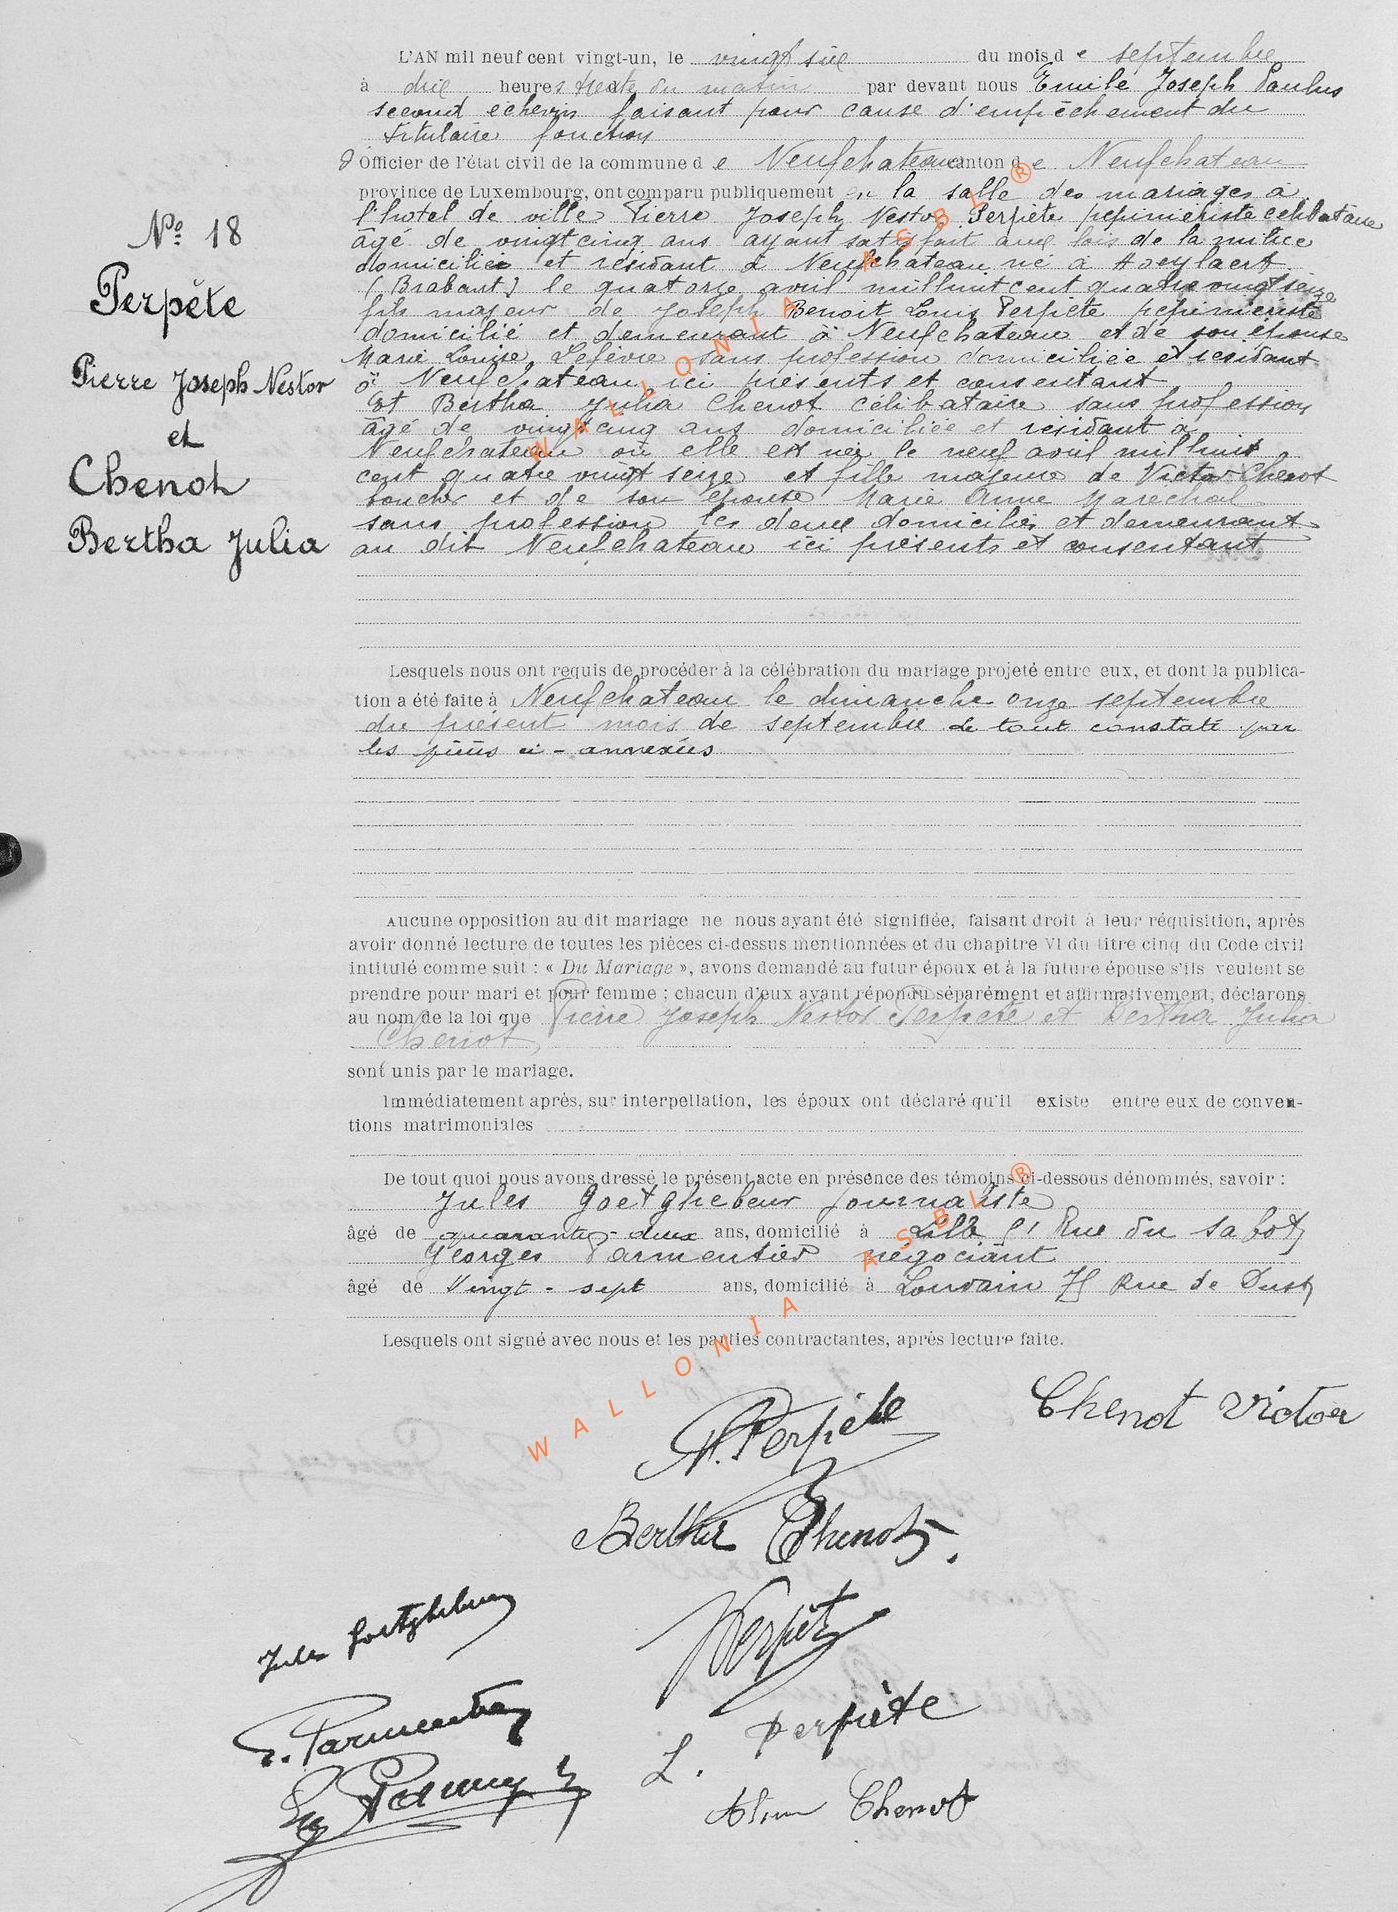 L'AN mil neuf cent vingt-un, le vingt six du mois de septembre
à dix heures trente du matin par devant nous Emile Joseph Paulus
second echevin faisant pour cause d'empêchement du
titulaire fonction
d'Officier de l'état civil de la commune de Neufchateau canton de Neufchateau
province de Luxembourg, ont comparu publiquement en la salle des mariages à
l'hotel de ville Pierre Joseph Nestor Perpète pepinieriste celibataire
âgé de vingt cinq ans ayant satisfait aux lois de la milice
domicilié et résidant à Neufchateau né à Hoeylaert
(Brabant) le quatorze avril mil huit cent quatre vingt seize
fils majeur de Joseph Benoit Louis Perpète pepinieriste
domicilié et demeurant à Neufchateau et de son épouse
Marie Louise Lefèvre sans profession domiciliée et résidant
à Neufchateau ici présents et consentant
Et Bertha Julia Chenot célibataire sans profession
âgé de vingt cinq ans domiciliée et résidant à
Neufchateau où elle est née le neuf avril mil huit
cent quatre vingt seize et fille majeure de Victor Chenot
boucher et de son épouse Marie Anne Marechal
sans profession les deux domiciliés et demeurant
au dit Neufchateau ici présents et consentant
Nº 18
Perpète
Pierre Joseph Nestor
et
Chenot
Bertha Julia
Lesquels nous ont requis de procéder à la célébration du mariage projeté entre eux, et dont la publica-
tion a été faite à Neufchateau le dimanche onze septembre
du présent mois de septembre le tout constaté par
les pièces ci-annexées
Aucune opposition au dit mariage ne nous ayant été signifiée, faisant droit à leur réquisition, après
avoir donné lecture de toutes les pièces ci-dessus mentionnées et du chapitre VI du titre cinq du Code civil
intitulé comme suit : « Du Mariage », avons demandé au futur époux et à la future épouse s'ils veulent se
prendre pour mari et pour femme ; chacun d'eux ayant répondu séparément et affirmativement, déclarons
au nom de la loi que Pierre Joseph Nestor Perpète et Bertha Julia
Chenot
sont unis par le mariage.
Immédiatement après, sur interpellation, les époux ont déclaré qu'il existe entre eux de conven-
tions matrimoniales
De tout quoi nous avons dressé le présent acte en présence des témoins ci-dessous dénommés, savoir :
Jules Goetghebeur journaliste
âgé de quarante-deux ans, domicilié à Lille Rue du Sabot
Georges Parmentier négociant
âgé de Vingt-sept ans, domicilié à Louvain Rue de
Lesquels ont signé avec nous et les parties contractantes, après lecture faite.
N. Perpète
Chenot Victor
Bertha Chenot.
Jules Goetghebeur
Perpète
G. Parmentier
L. Perpète
Chenot
WALLONIA ASBL ®
WALLONIA ASBL ®